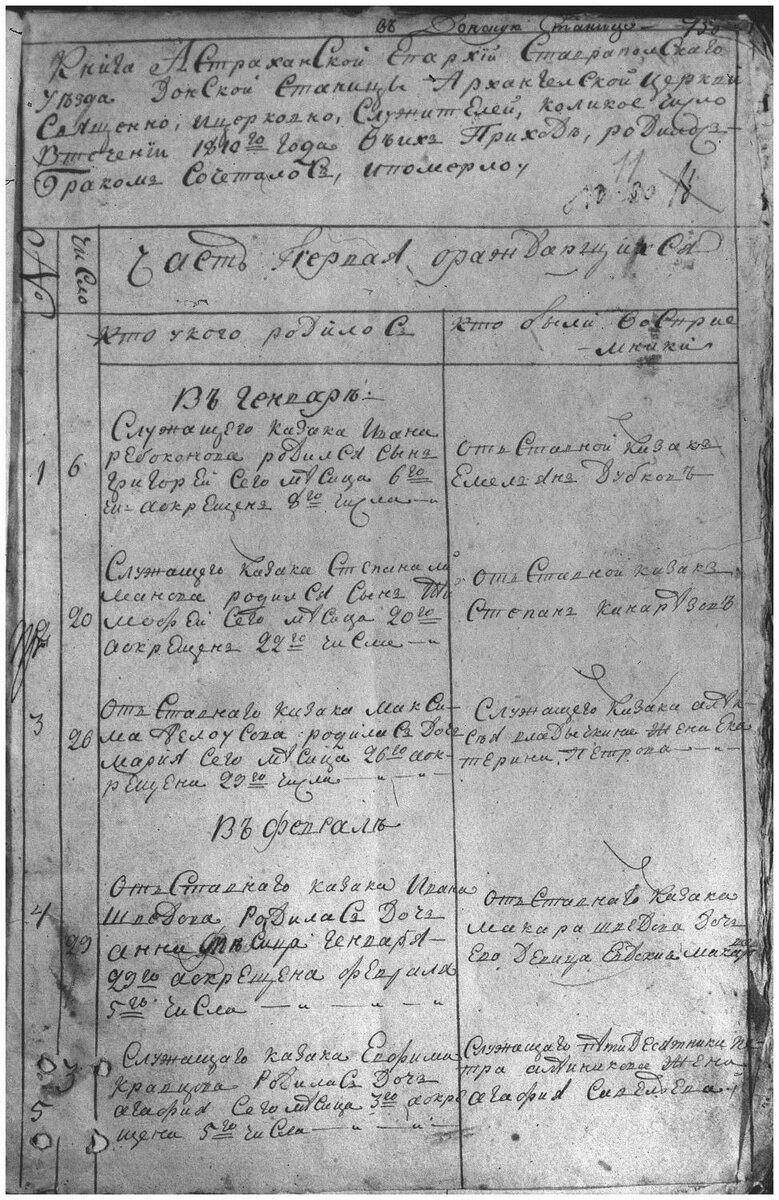 въ Донскую Станицу
Книга Астраханской Епархіи Ставрапольскаго
Уѣзда Донской Станицы Архангельской церкви
Священно, ицерковно, Служителей, коликое число
Втеченіи 1810го года вьихъ Приходѣ, родилось
бракомъ Сочеталось, ипомерло
11
№
число
Часть первая ораждающихся
кто укого родилосъ
кто были восприе
мники
Въ Генварѣ
1
6
Служащего казака Ивана
Ребоконова родился сынъ
григорей сего мѣсяца 6го
чи- аокрещенъ 8го числа
отъставной казакъ
Емельянъ Дубковъ
20
Служащего казака Степана
манова родился сынъ Ти
мофей сего мѣсяца 20го
аокрещенъ 22го числа
отъставной казакъ
Степанъ
3
26
Отъставнаго казака макси-
ма белоусова родиласъ дочь
мария сего мѣсяца 26го аок-
рещена 29го числа
Служащего казака алѣк-
сѣя владычкина жена Ека
терина Петрова
Въ февралѣ
4
29
Отъставнаго казака Ивана
Шведова родиласъ дочъ
анна мѣсяца генваря
29го аокрещена февраля
5го числа
отъставнаго казака
макара шведова дочъ
Его девица
5
3
Служащаго казака Евфима
Кравцова родиласъ дочъ
агафия сего мѣсяца 3го аокре
щена 5го числа
Служащаго пятидесятника пе
тра алѣйникова жена
агафия савельева